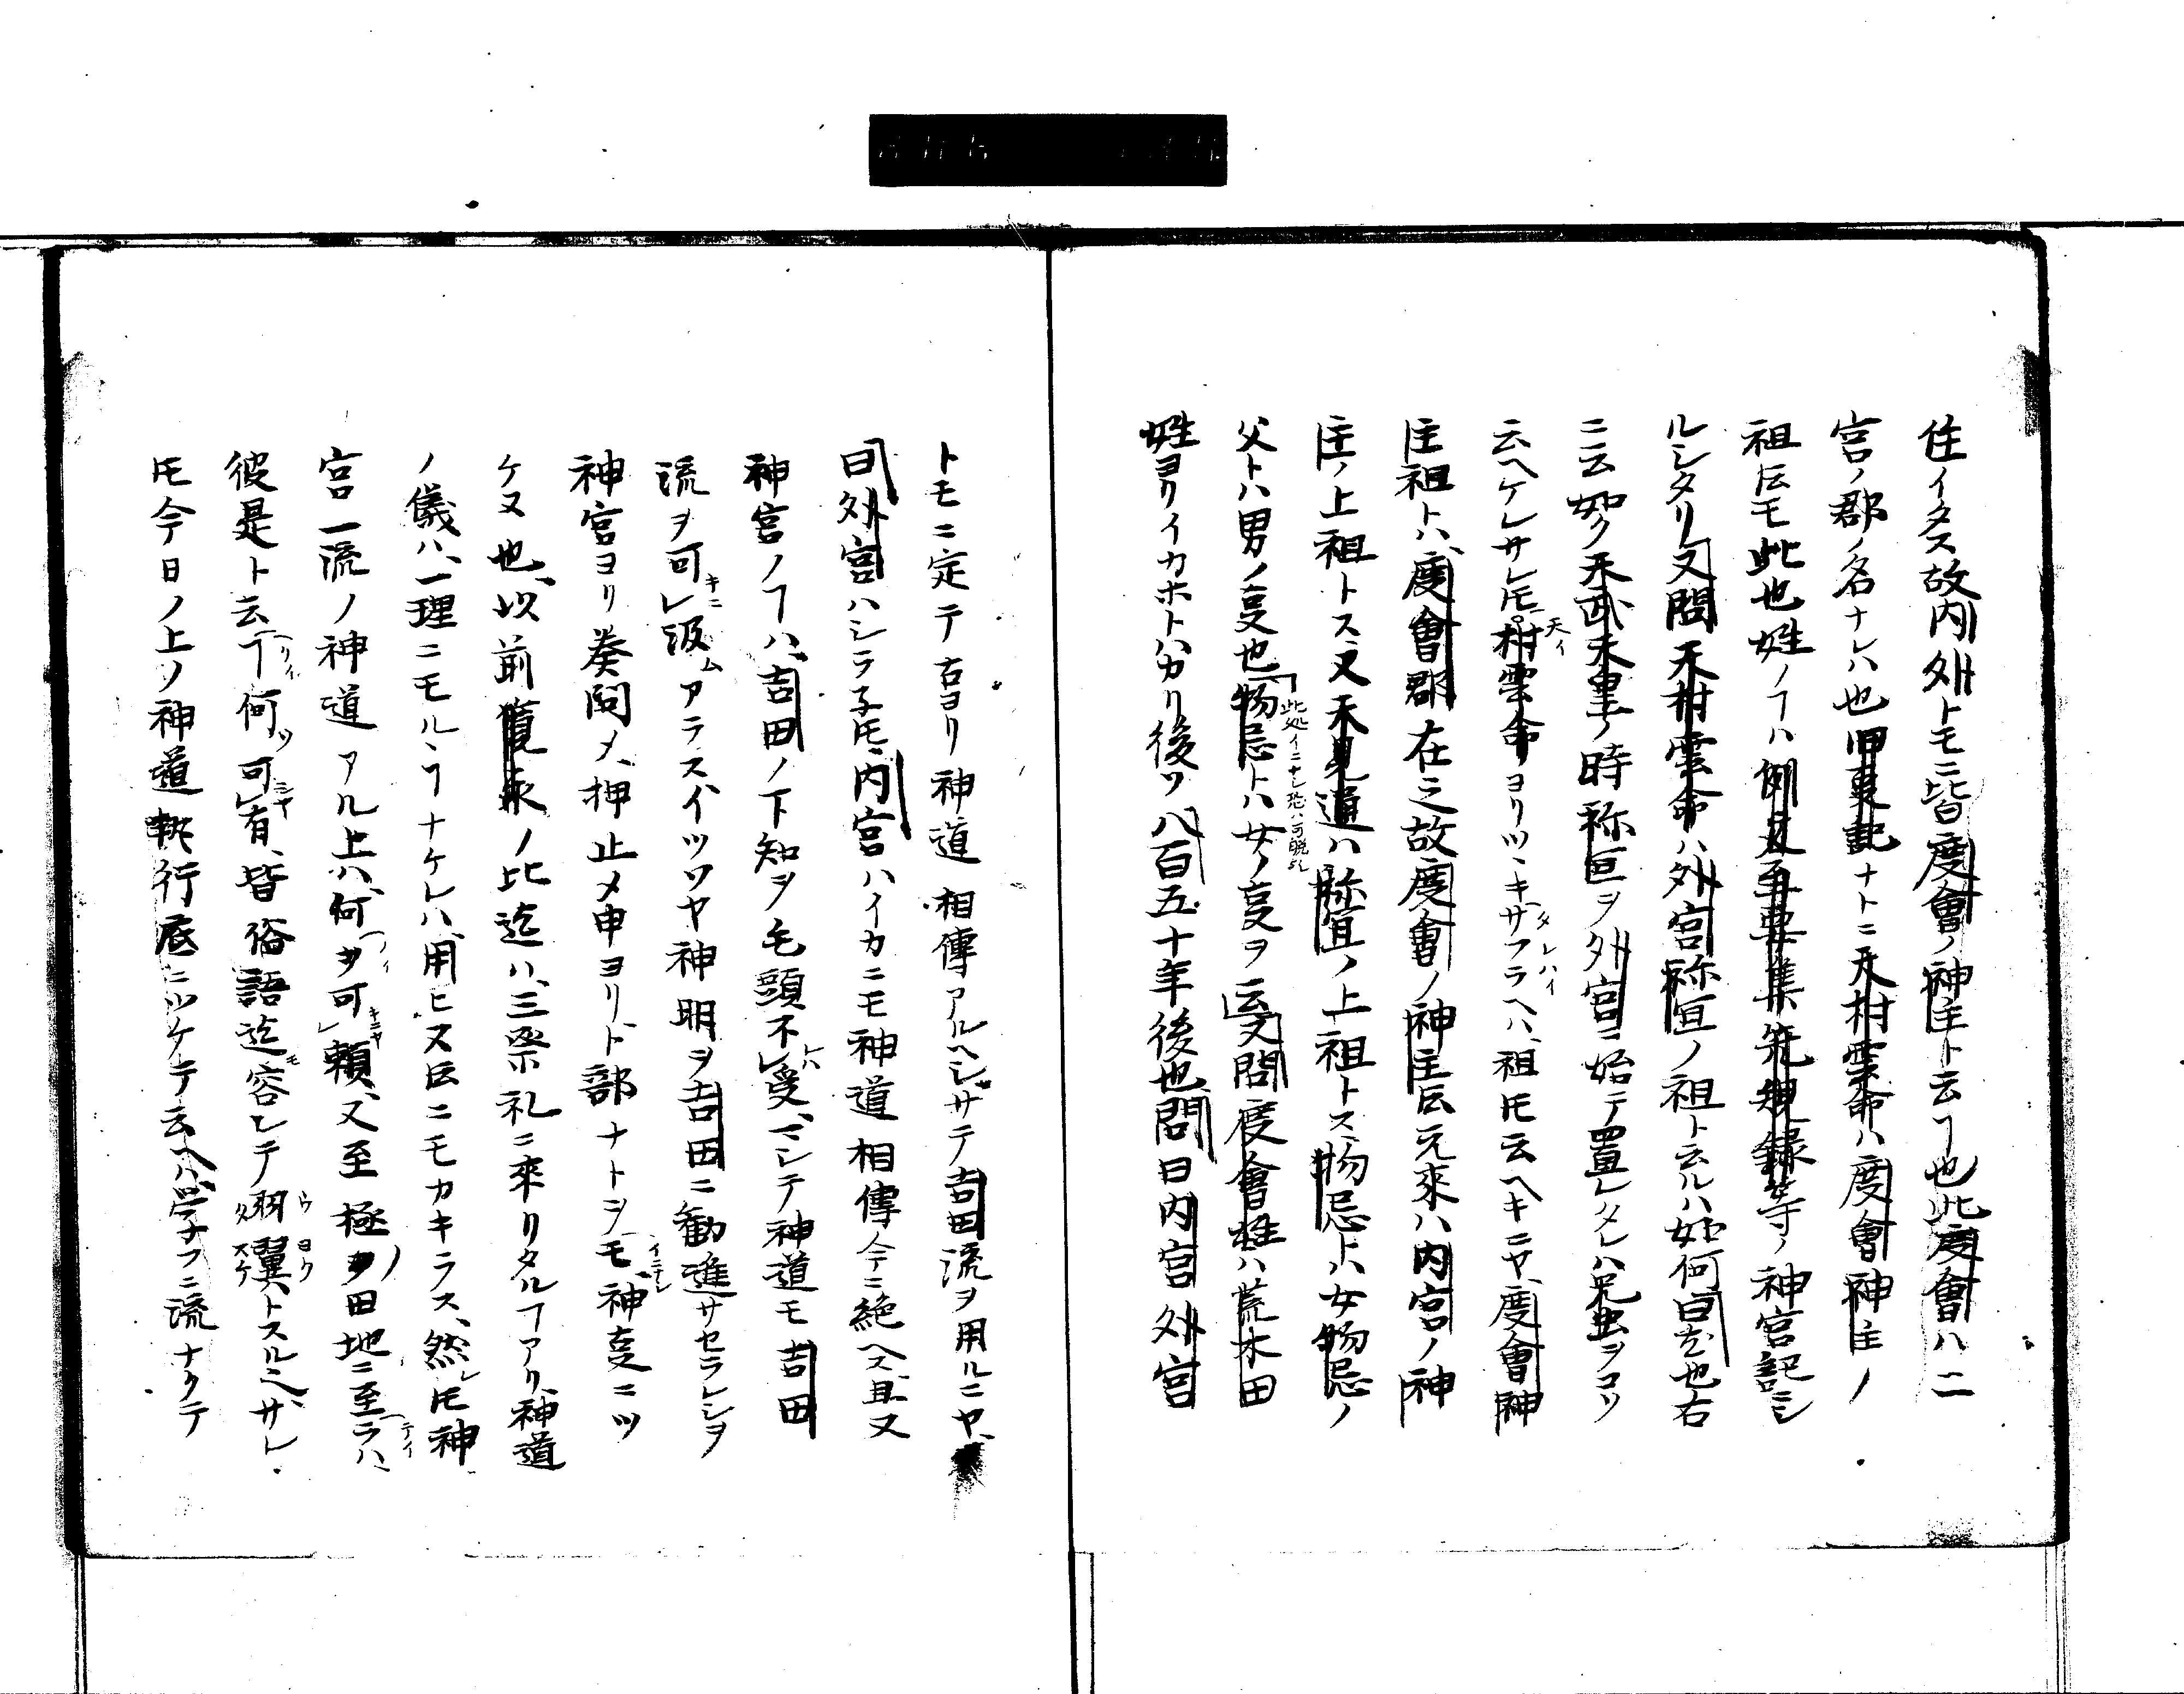 住イタス故内外トモニ皆度會ノ神主ト云ヿ也此度會ハ二
宮ノ郡ノ名ナレハ也旧事記ナトニ天村雲命ハ度會神主ノ
祖トモ此也姓ノヿハ例文至要集先規録等ノ神宮記ニシ
ルシタリ又問天村雲命ハ外宮祢宜ノ祖ト云ルハ如何曰左也右
ニ云如ク天武天皇ノ時祢宜ヲ外宮ニ始テ置レタレハ兄虫ヲコソ
云ヘケレサレ𪜈村雲命ヨリツヽキサフラヘハ祖𪜈云ヘキニヤ、度會神
天イ
タレハイ
主祖トハ、度會郡在之故度會ノ神主𪜈元来ハ内宮ノ神
主ノ上祖トス又天見通ハ祢宜ノ上祖トス物忌ハ女物忌ノ
父トハ男ノ㕝也物忌トハ女ノ㕝ヲ云又問度會姓ハ荒木田
此処イニナシ恐ハ可脱乎
姓ヨリイカホトハカリ後ソ八百五十年後也問曰内宮外宮
トモニ定テ古ヨリ神道相傳アルヘシサテ吉田流ヲ用ルニヤ、
曰外宮ハシラ子𪜈、内宮ハイカニモ神道相傳今ニ絶ヘス、且又
神宮ノヿハ、吉田ノ下知ヲ毛頭不レ受、マシテ神道モ吉田
ケハ
流ヲ可レ汲アラス、イツソヤ神明ヲ吉田ニ勧進サセラレシヲ
キニ
ム
神宮ヨリ奏聞メ、押止メ申ヨリ、卜部ナトヲシモ、神㕝ニツ
イニナシ
ケヌ也、以前寛永ノ比迄ハ、三祭礼ニ来リタルヿアリ、神道
ノ儀ハ、一理ニモルヽヿナケレハ、用ヒヌ𪜈ニモカキラス、然レ𪜈神
宮一流ノ神道アル上ハ、何ヲ可レ頼、又至極ノ田地ニ至ラハ、
キニヤ
テイ
彼是ト云ヿ何ソ可レ有、皆俗語迄容シテ羽翼トスルヘシ、サレ
リイ
ニヤ
モ
ウヨク
タスケ
𪜈今日ノ上ノ神道執行底ニツケテ云ヘハ、学ナフニ流ナクテ